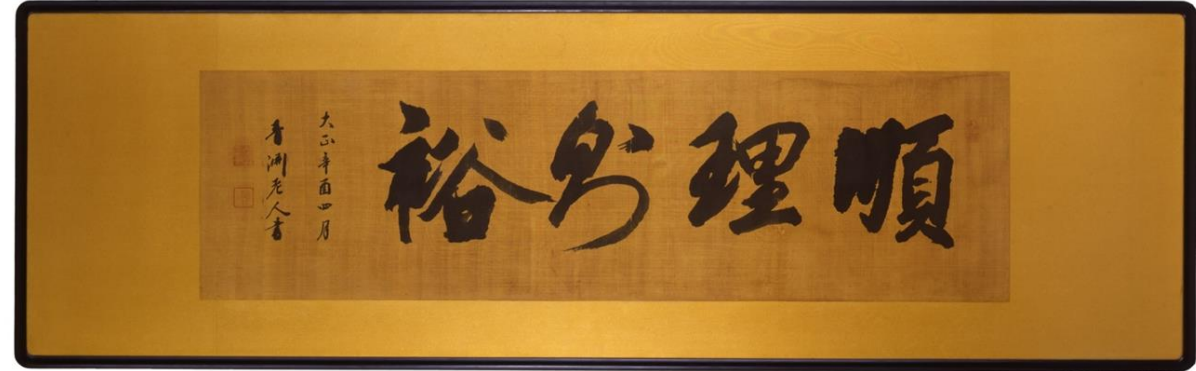 順理則裕
大正辛酉四月
青淵老人書